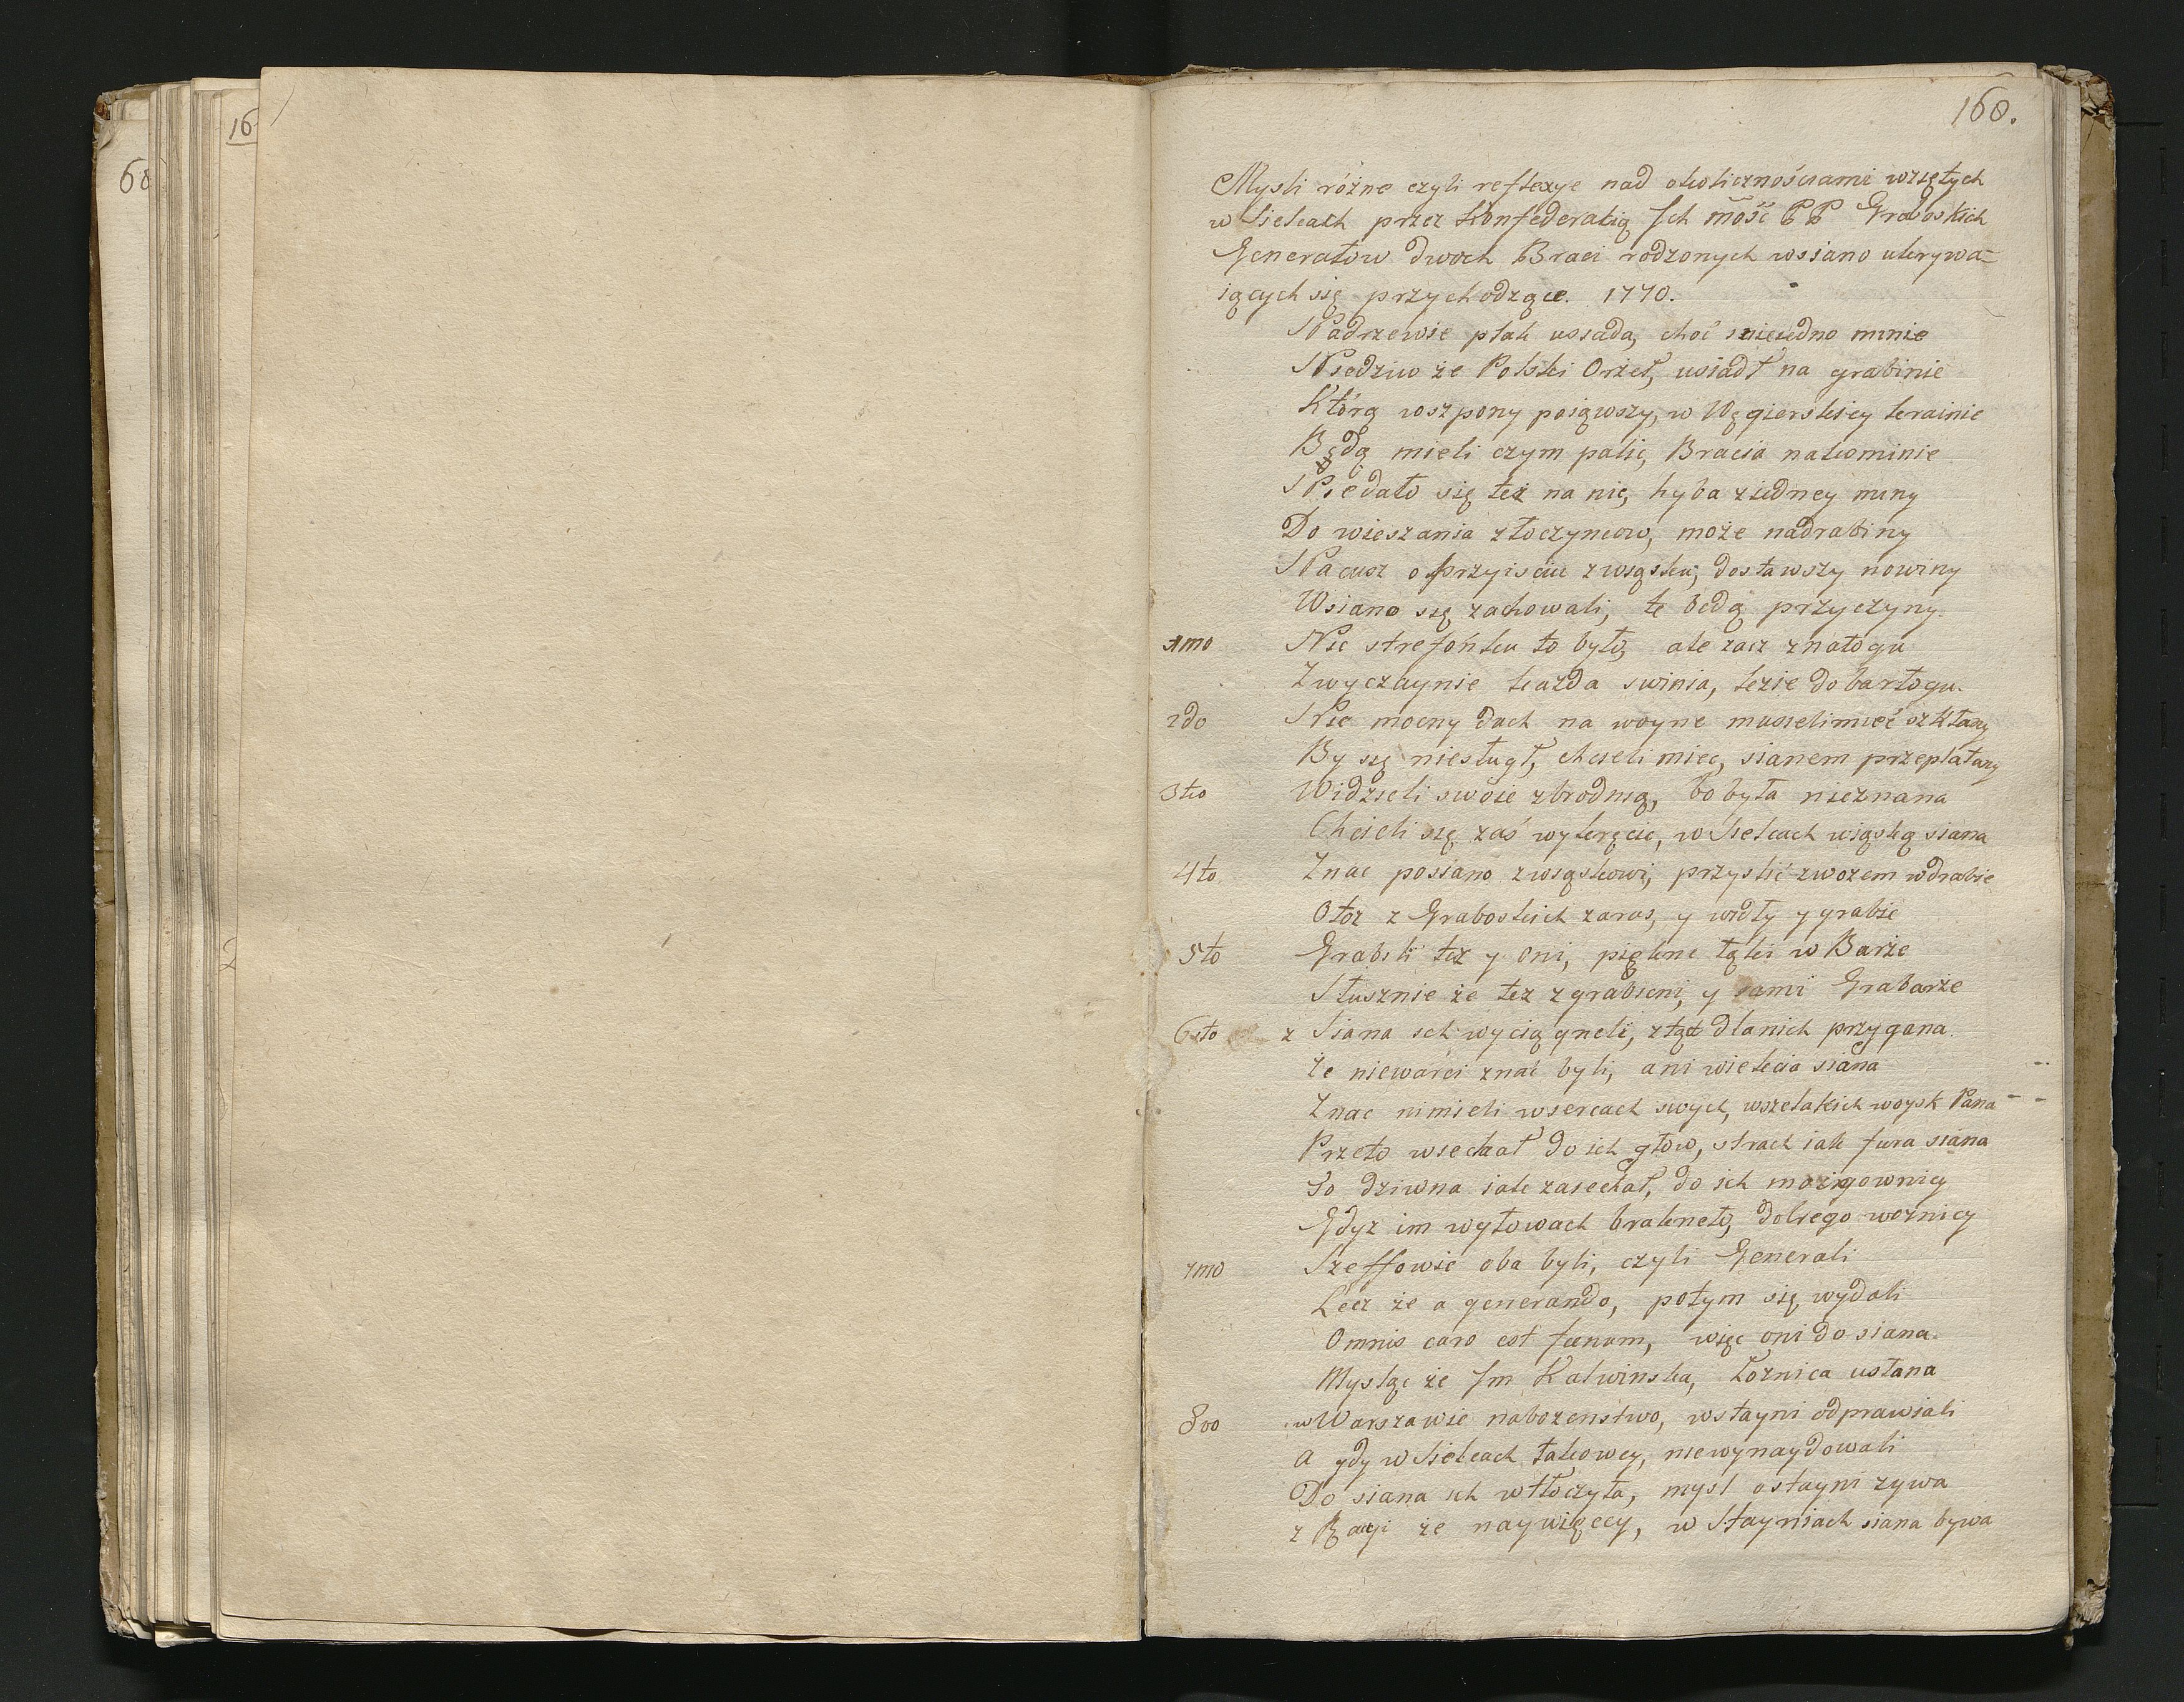 16
68
168.
Mysli różne czyli reflexye nad okolicznościami wziętych
w Sielcach przez Konfederatią Ich mość PP Graboskich
Generałow dwoch Braci rodzonych wsiano ukrywa=
iących się przychodzące. 1770.
Nadrzewie ptak ussada, choć nieiedno minie
Niedziw że Polski Orzeł, usiadł na grabinie
Którą wszpony poiąwszy, w Węgierskiey krainie
Będą mieli czym palić, Bracia nakominie
Niedało się też na nic, hyba ziedney miny
Do wieszania złoczyncow, może nadrabiny
Nacusz o przyisciu zwiąsku, dostawszy nowiny
Wsiano się zachowali, te będą przyczyny.
1mo Nic strefońku to było, ale racz znałogu
Zwyczaynie każda swinia, lezie do barłogu.
2do Nie mocny duch na woyne musielimieć szkłazy
By się niestugł, chcieli miec, sianem przeplatazy
3tio Widzieli swoie zbrodnią, bo była nieznana
Chcieli się zaś wykręcic, w Sielcach wiąską siana
4to Znac posiano zwiąskowi, przyslić zwozem wdrabie
Otoz z Graboskich zaras, y widły y grabie
5to Grabili tez y oni, piękne łąki w Barże
Słusznie że tez zgrabieni, y sami Grabarże
6sto z Siana ich wyciągneli, ztąd dlanich przygana
Że niewarci znać byli, ani wiekcia siana
Znac nimieli wsercach swych, wszelakich woysk Pana
Przeto wiechał do ich głow, strach iak fura siana
To dziwna iak zaiechał, do ich mozgownicy
Gdyz im wgłowach brakneło, dobrego woznicy
7mo Szeffowie oba byli, czyli Generali
Lecz że a generando, potym się wydali
Omnis caro est fœnum, więc oni do siana
Mysląc że Im Kalwinska, łoznica usłana
8vo w Warszawie nabozenstwo, wstayni odprawiali
a gdy w Sielcach takowey, niewynaydowali
Do siana ich wtłoczyła, mysl ostayni zywa
z Racyi że naywięcey, w Stayniach siana bywa